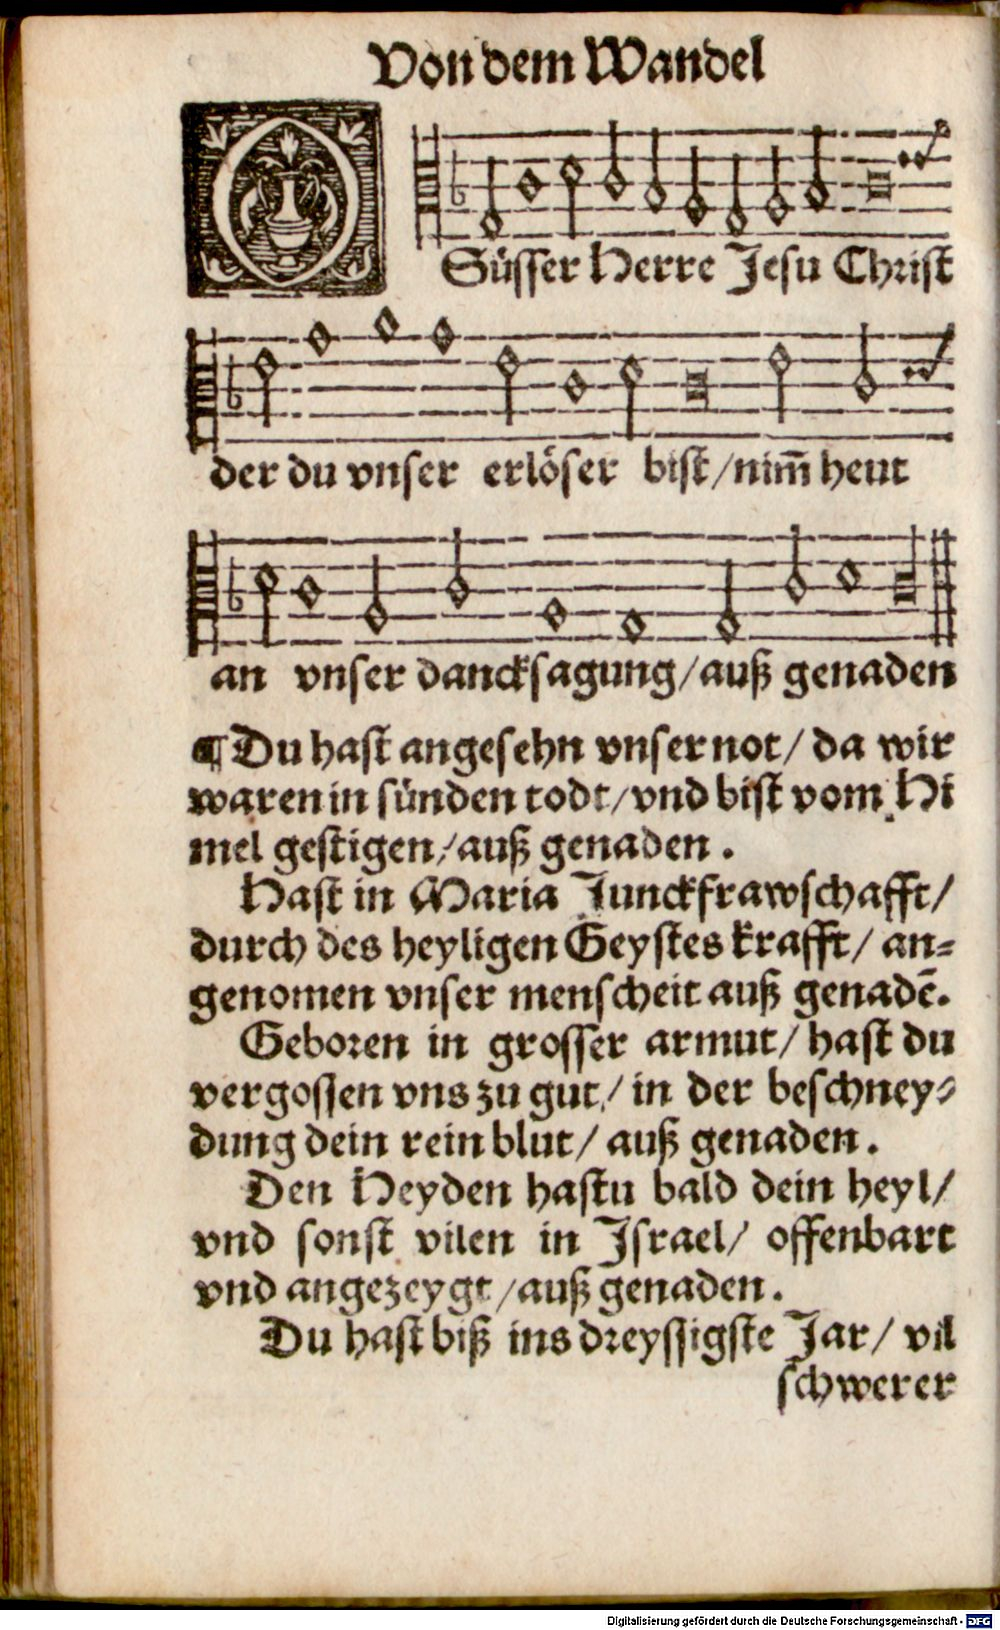 Von dem Wandel
O Süsser Herre Jesu Christ
der du vnser erlöser bist/nim̄ heut
an vnser dancksagung/auß genaden
¶ Du hast angesehn vnser not/ da wir
waren in sünden todt/vnd bist vom Hi
mel gestigen/auß genaden.
Hast in Maria Junckfrawschafft/
durch des heyligen Geystes krafft/ an-
genomen vnser menscheit auß genadē.
Geboren in grosser armut/ hast du
vergossen vns zu gut/ in der beschney-
dung dein rein blut/ auß genaden.
Den Heyden hastu bald dein heyl/
vnd sonst vilen in Israel/ offenbart
vnd angezeygt/auß genaden.
Du hast biß ins dreyssigste Jar/ vil
schwerer
Digitalisierung gefördert durch die Deutsche Forschungsgemeinschaft - DFG